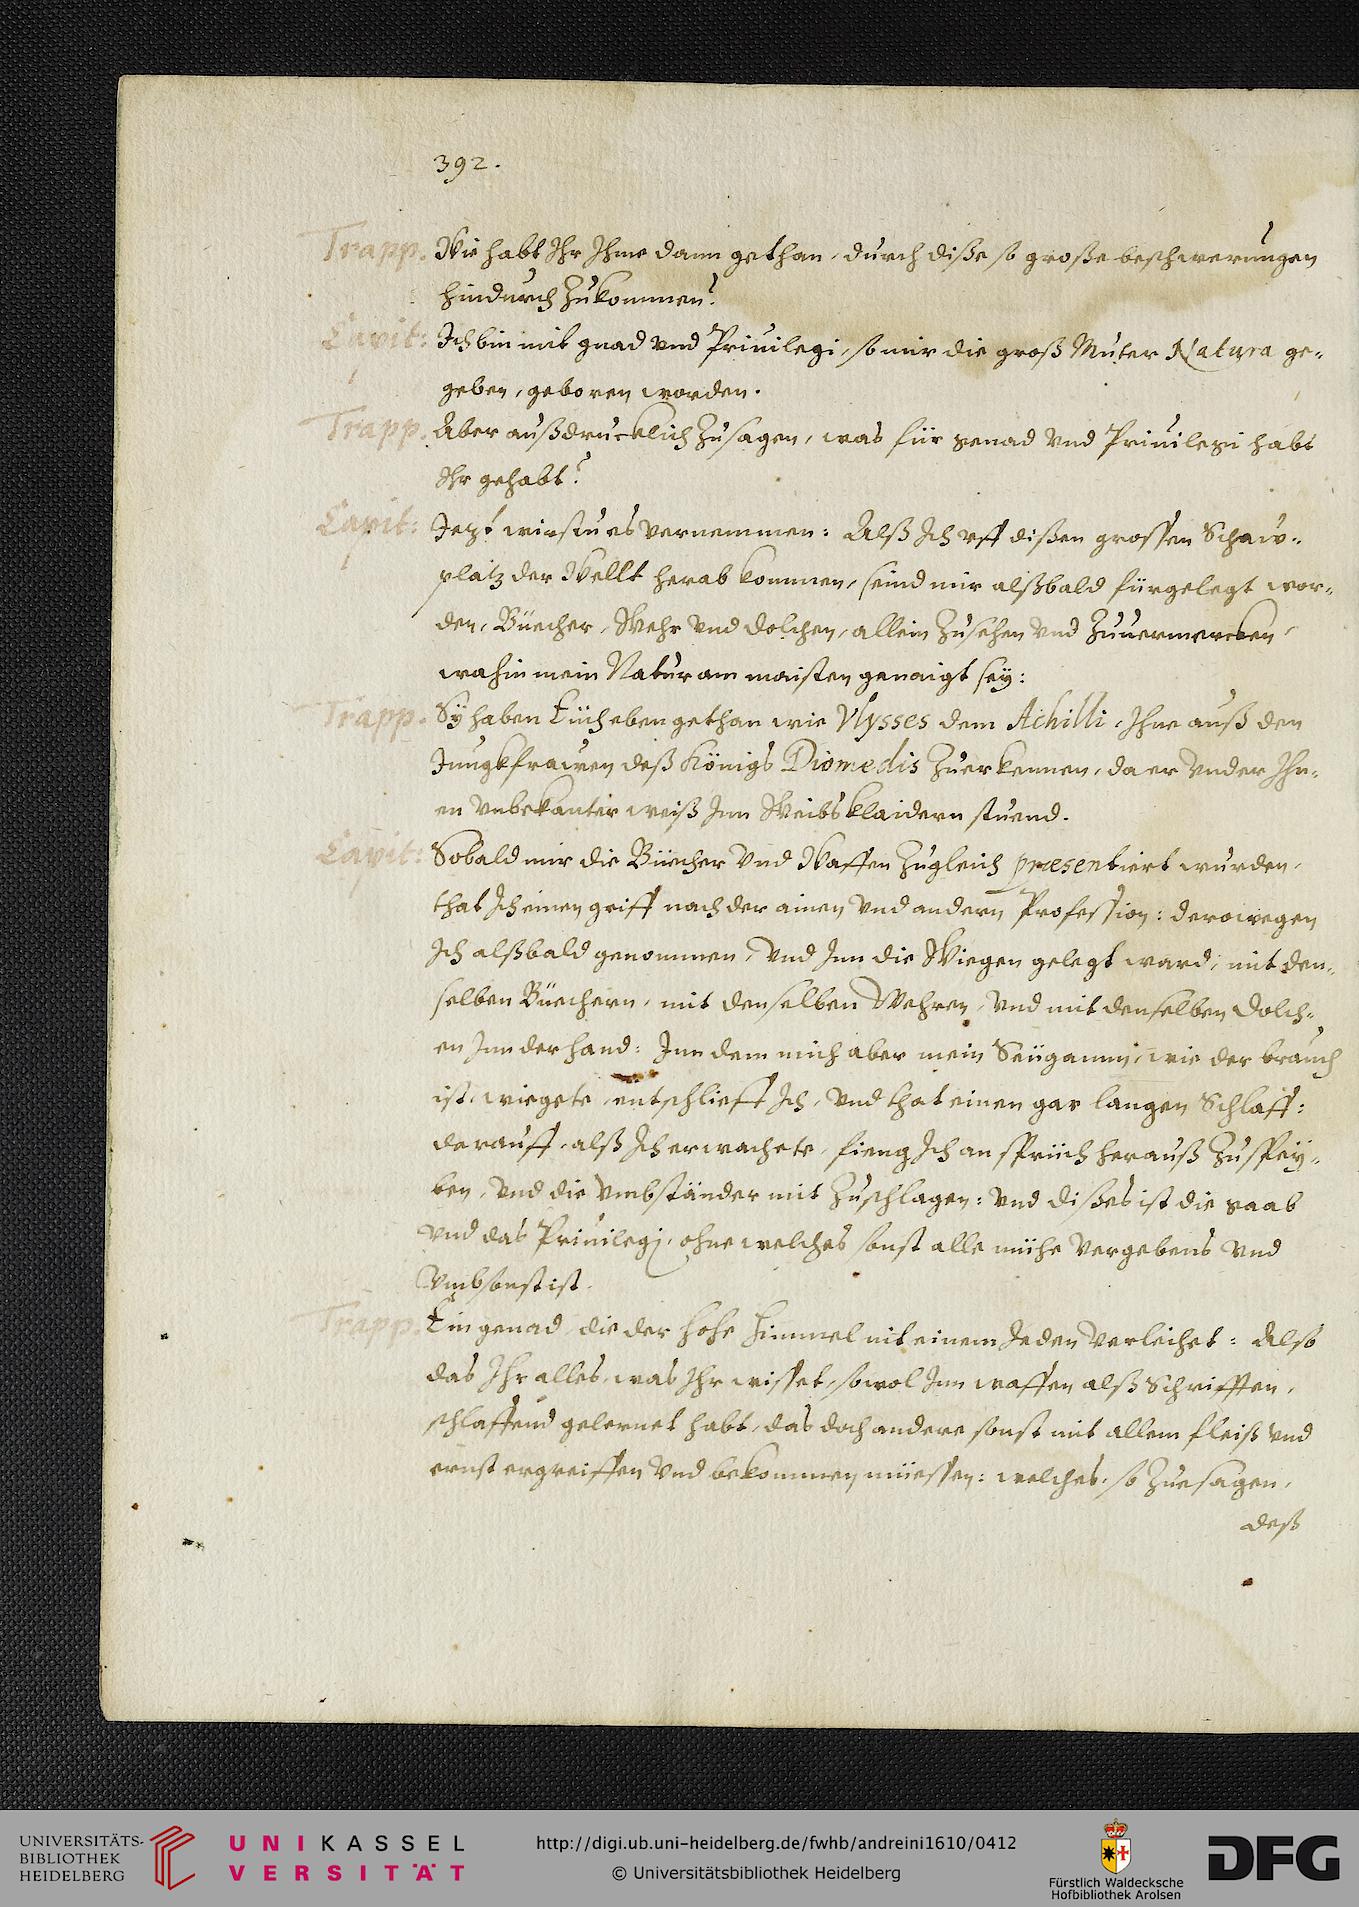 392.
Trapp. Wie habt Ihr Ihme dann gethan, durch diße so große beschwerungen
hindurch zukommen?
Capit: Ich bin mit gnad vnd Priuilegi, so mir die groß Muter Natura ge-
geben, geboren worden.
Trapp. Aber außdrucklich zusagen, was für genad vnd Priuilegi habt
Ihr gehabt?
Capit: Jezt wirstu es vernemmen: Alß Ich vff dißen grossen Schaw-
platz der Wellt herab kommen, seind mir alßbald fürgelegt wor-
den, Büecher, Wehr vnd Dolchen, allein zusehen vnd zuuermercken,
wahin mein Natur am maisten genaigt sey:
Trapp. Sy haben Eüch eben gethan wie Vlysses dem Achilli, Ihne auß den
Jungkfrawen deß Königs Diomedis zuerkennen, da er vnder Ihn-
en vnbekanter weiß Inn Weibsklaidern stuend.
Capit: Sobald mir die Büecher vnd Waffen zugleich præsentiert wurden,
that Ich einen griff nach der ainen vnd andern Profession: derowegen
Ich alßbald genommen, vnd Inn die Wiegen gelegt ward, mit den-
selben Büechern, mit denselben Wehren, vnd mit denselben Dolch-
en Inn der hand: Inn dem mich aber mein Seügamm, wie der brauch
ist, wiegete, entschlieff Ich, vnd that einen gar langen Schlaff:
darauff, alß Ich erwachete, fieng Ich an sprüch herauß zuspey-
ben, vnd die vmbständer mit zuschlagen: vnd dißes ist die gaab
vnd das Priuilegj, ohne welches sonst alle mühe vergebens vnd
vmbsonst ist.
Trapp. Ein genad, die der hohe himmel nit einem Jeden verleihet: Also
das Ihr alles, was Ihr wisset, sowol Inn waffen alß Schrifften,
schlaffend gelernet habt, das doch andere sonst mit allem fleiß vnd
ernst ergreiffen vnd bekommen müessen: welches, so zuesagen,
deß
UNIVERSITÄTS-
BIBLIOTHEK
HEIDELBERG
UNIKASSEL
VERSITÄT
http://digi.ub.uni-heidelberg.de/fwhb/andreini1610/0412
© Universitätsbibliothek Heidelberg
Fürstlich Waldecksche
Hofbibliothek Arolsen
DFG